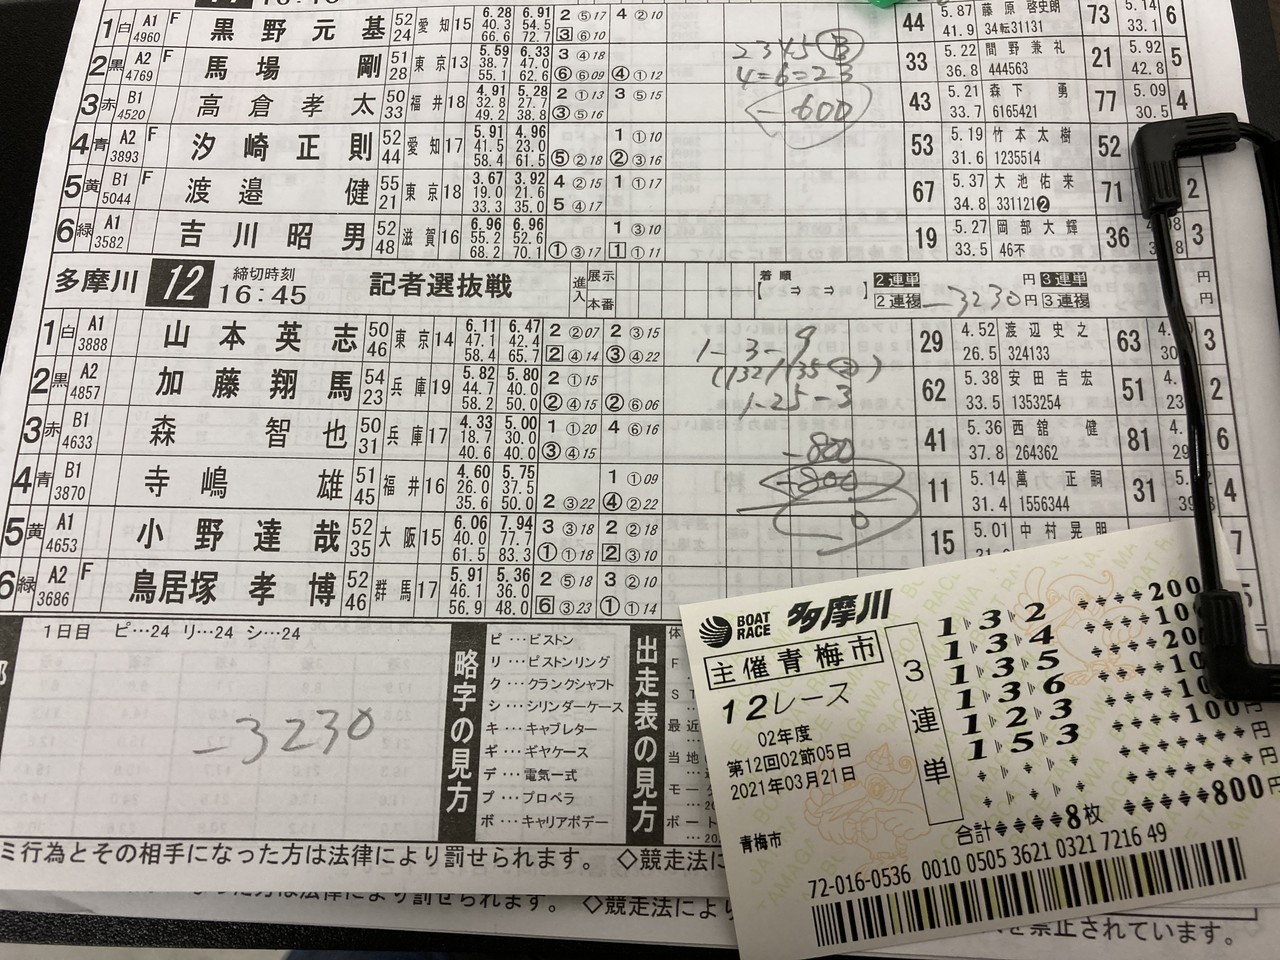 1 白 A1 4960 F 黒野元基 52 24 愛知 15 6.28 40.3 66.6 6.91 54.5 72.7 2 ⑤17 4 ②10 3 ⑥10 44 5.87 41.9 藤原啓史朗 34転31131 73 5.14 33.1 6
2 黒 A2 4769 F 馬場剛 51 28 東京 13 5.59 38.7 55.1 6.33 47.0 62.6 3 ④18 ⑥ ⑥09 ④ ①12 33 5.22 36.8 間野兼礼 444563 21 5.92 42.8 5
3 赤 B1 4520 高倉孝太 50 33 福井 18 4.91 32.8 49.2 5.28 27.7 38.8 2 ①13 3 ⑤15 ③ ⑤16 43 5.21 33.7 森下勇 6165421 77 5.09 30.5 4
4 青 A2 3893 F 汐崎正則 52 44 愛知 17 5.91 41.5 58.4 4.96 23.0 61.5 1 ①10 ⑤ ②18 ② ③16 53 5.19 31.6 竹本太樹 1235514 52
5 黄 B1 5044 F 渡邉健 55 21 東京 18 3.67 19.0 33.3 3.92 21.6 35.0 4 ②15 1 ①17 5 ④17 67 5.37 34.8 大池佑来 331121❷ 71 2
6 緑 A1 3582 吉川昭男 52 48 滋賀 16 6.96 55.2 68.2 6.96 52.6 70.1 1 ③10 ① ③17 1 ①11 19 5.27 33.5 岡部大輝 46不 36 3
4=6=23
-600
多摩川 12 締切時刻 16:45 記者選抜戦 進入 展示 本番 着順 【 ⇒ ⇒ 】 2連単 円 3連単 円
2連複 -3230円 3連複 円
1 白 A1 3888 山本英志 50 46 東京 14 6.11 47.1 58.4 6.47 42.4 65.7 2 ②07 2 ③15 2 ④14 ③ ④22 29 4.52 26.5 渡辺史之 324133 63 3
2 黒 A2 4857 加藤翔馬 54 23 兵庫 19 5.82 44.7 58.2 5.80 40.0 50.0 2 ①15 ② ④15 ② ⑥06 62 5.38 33.5 安田吉宏 1353254 51 2
3 赤 B1 4633 森智也 50 31 兵庫 17 4.33 18.7 40.6 5.00 30.0 40.0 1 ①20 4 ⑥16 ③ ④15 41 5.36 37.8 西舘健 264362 81 6
4 青 B1 3870 寺嶋雄 51 45 福井 16 4.60 26.0 35.6 5.75 37.5 50.0 1 ①09 2 ③22 ④ ②22 11 5.14 31.4 萬正嗣 1556344 31 4
5 黄 A1 4653 小野達哉 52 35 大阪 15 6.06 40.0 61.5 7.94 77.7 83.3 3 ③18 2 ②18 ① ①18 2 ③10 15 5.01 中村晃朋 7
6 緑 A2 3686 F 鳥居塚孝博 52 46 群馬 17 5.91 46.1 56.9 5.36 36.0 48.0 2 ⑤18 3 ②10 6 ③23 ① ①14
1-3-9
(132 135 ②)
1-25-3
-800
-800
0
1日目 ピ…24 リ…24 シ…24
-3230
略字の見方
ピ…ピストン
リ…ピストンリング
ク…クランクシャフト
シ…シリンダーケース
キ…キャブレター
ギ…ギヤケース
デ…電気一式
プ…プロペラ
ボ…キャリアボデー
出走表の見方
BOAT RACE 多摩川
主催青梅市
12レース
02年度
第12回02節05日
2021年03月21日
青梅市
3連単
1 3 2 200
1 3 4 10
1 3 5 20
1 3 6 10
1 2 3 10
1 5 3 100円
合計 8枚 800円
72-016-0536 0010 0505 3621 0321 7216 49
ミ行為とその相手になった方は法律により罰せられます。 ◇競走法に
は法律により罰せられます。 ◇競走法により
禁止されています。